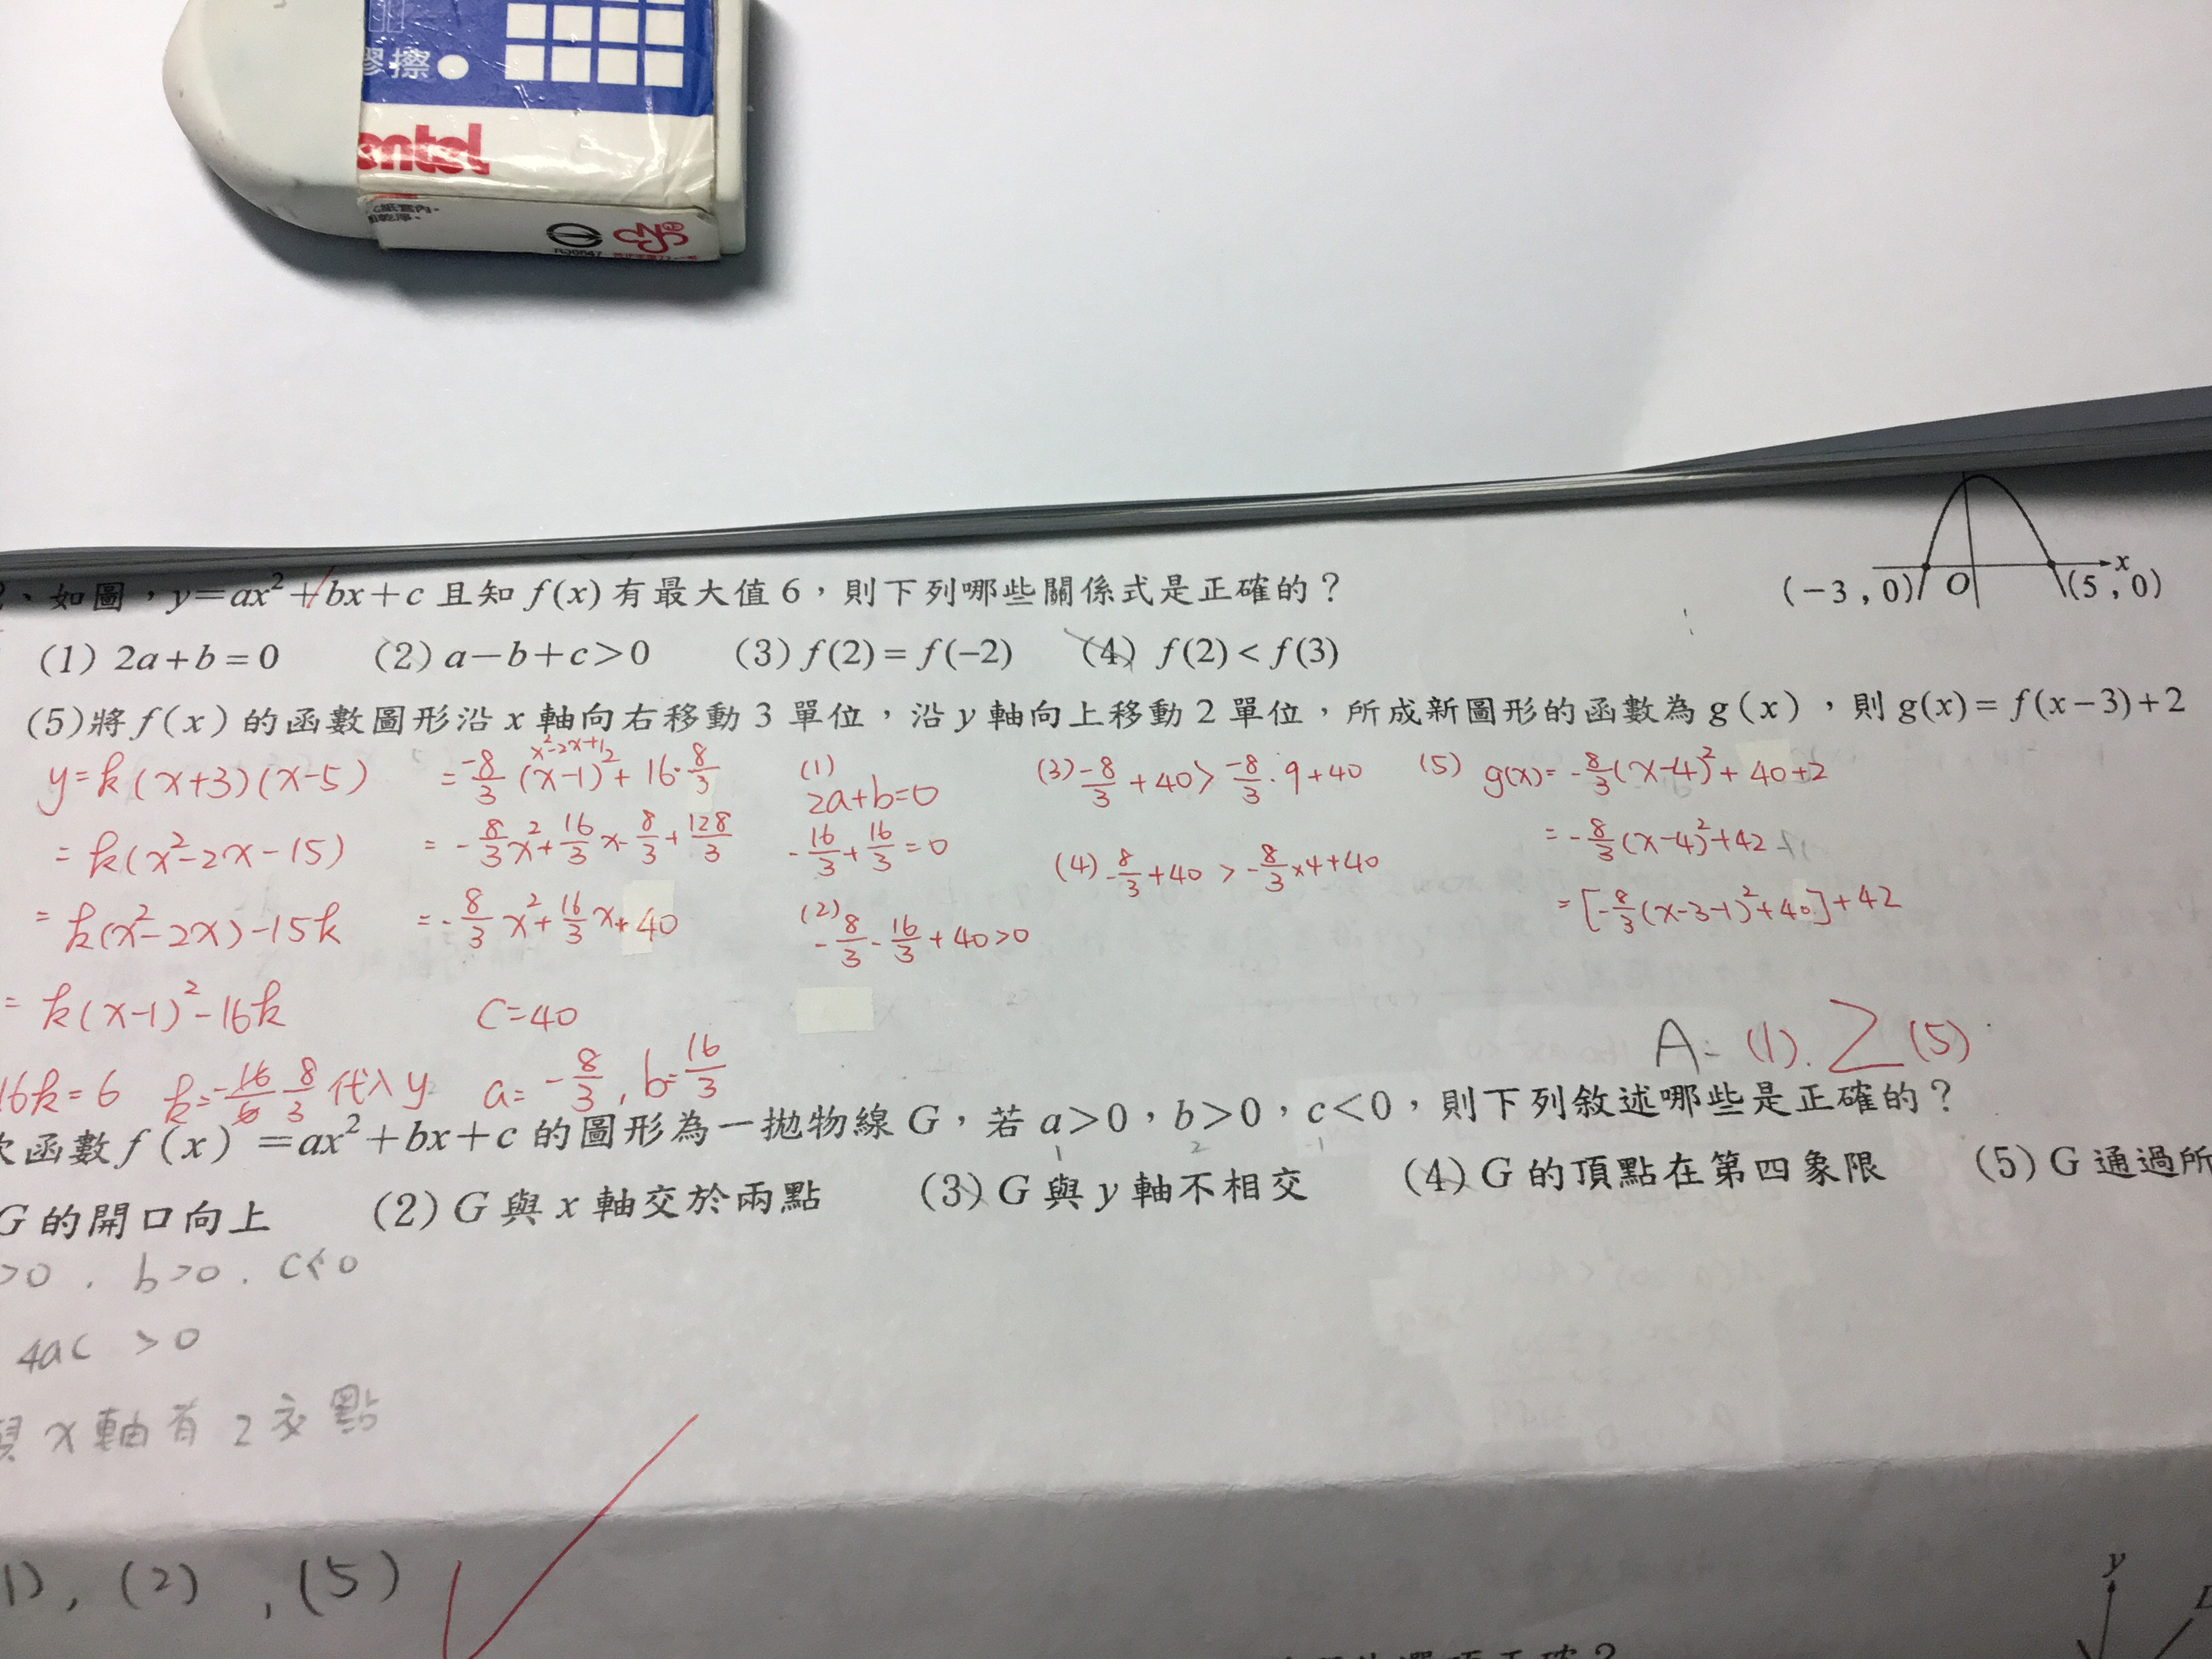 膠擦
entel
如圖，y=ax²+bx+c 且知 f(x) 有最大值 6，則下列哪些關係式是正確的？
(-3, 0) O (5, 0) x
(1) 2a+b=0 (2) a-b+c>0 (3) f(2)=f(-2) (4) f(2)<f(3)
(5)將 f(x) 的函數圖形沿 x 軸向右移動 3 單位，沿 y 軸向上移動 2 單位，所成新圖形的函數為 g(x)，則 g(x)= f(x-3)+2
y=k(x+3)(x-5)
=k(x²-2x-15)
=k(x²-2x)-15k
=k(x-1)²-16k
16k=6 k=-16/6 8/3 代入 y
x²-2x+1
=-8/3(x-1)²+16·8/3
=-8/3x²+16/3x-8/3+128/3
=-8/3x²+16/3x+40
C=40
a=-8/3, b=16/3
(1)
2a+b=0
-16/3+16/3=0
(2)
-8/3-16/3+40>0
(3) -8/3+40>-8/3·9+40
(4) -8/3+40>-8/3×4+40
(5) g(x)=-8/3(x-4)²+40+2
=-8/3(x-4)²+42
=[-8/3(x-3-1)²+40]+42
A= (1). (5)
次函數 f(x)=ax²+bx+c 的圖形為一拋物線 G，若 a>0，b>0，c<0，則下列敘述哪些是正確的？
1 2 -1
G 的開口向上 (2) G 與 x 軸交於兩點 (3) G 與 y 軸不相交 (4) G 的頂點在第四象限 (5) G 通過所
>0 . b>0 . c<0
4ac >0
與 x 軸有 2 交點
1), (2), (5)
y
L